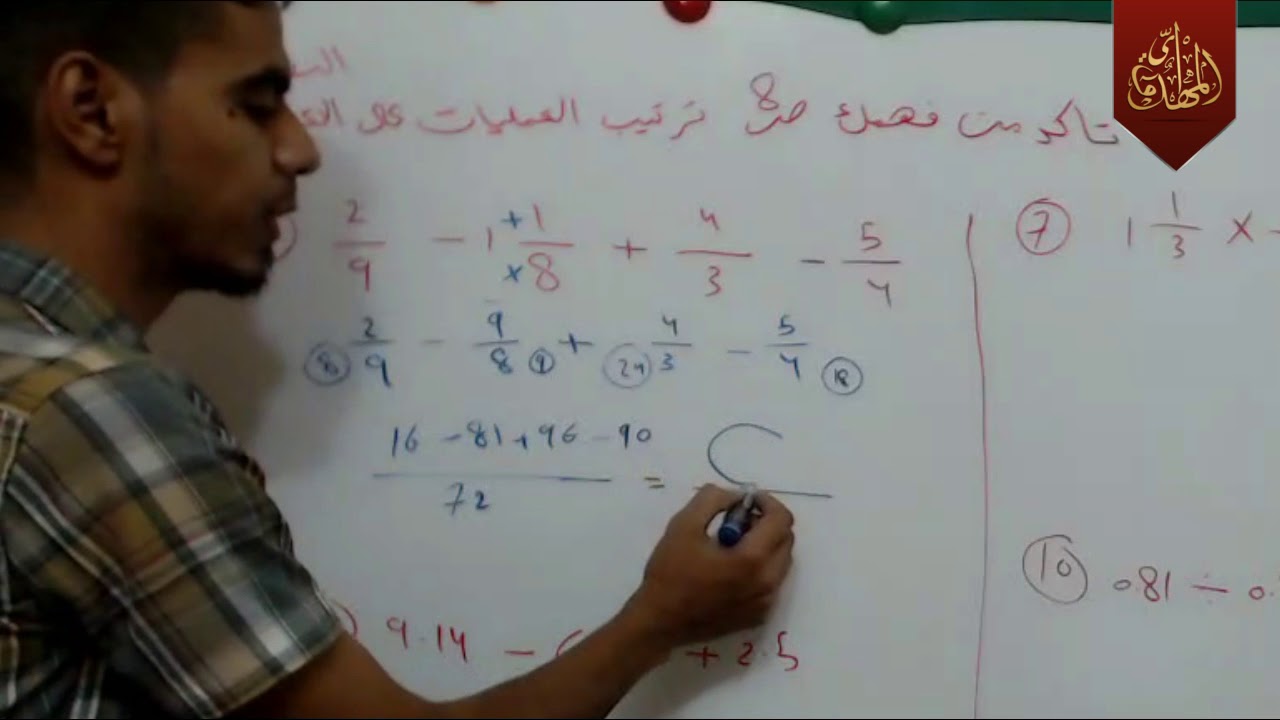 تأكد من فهمك ص8 ترتيب العمليات
2/9 - 1 1/8 + 4/3 - 5/4
+
×
⑧ 2/9 - 9/8 ⑨ + ㉔ 4/3 - 5/4 ⑱
16 - 81 + 96 - 90 / 72 =
9.14 - ( + 2.5
⑦ 1 1/3 ×
⑩ 0.81 ÷ 0.